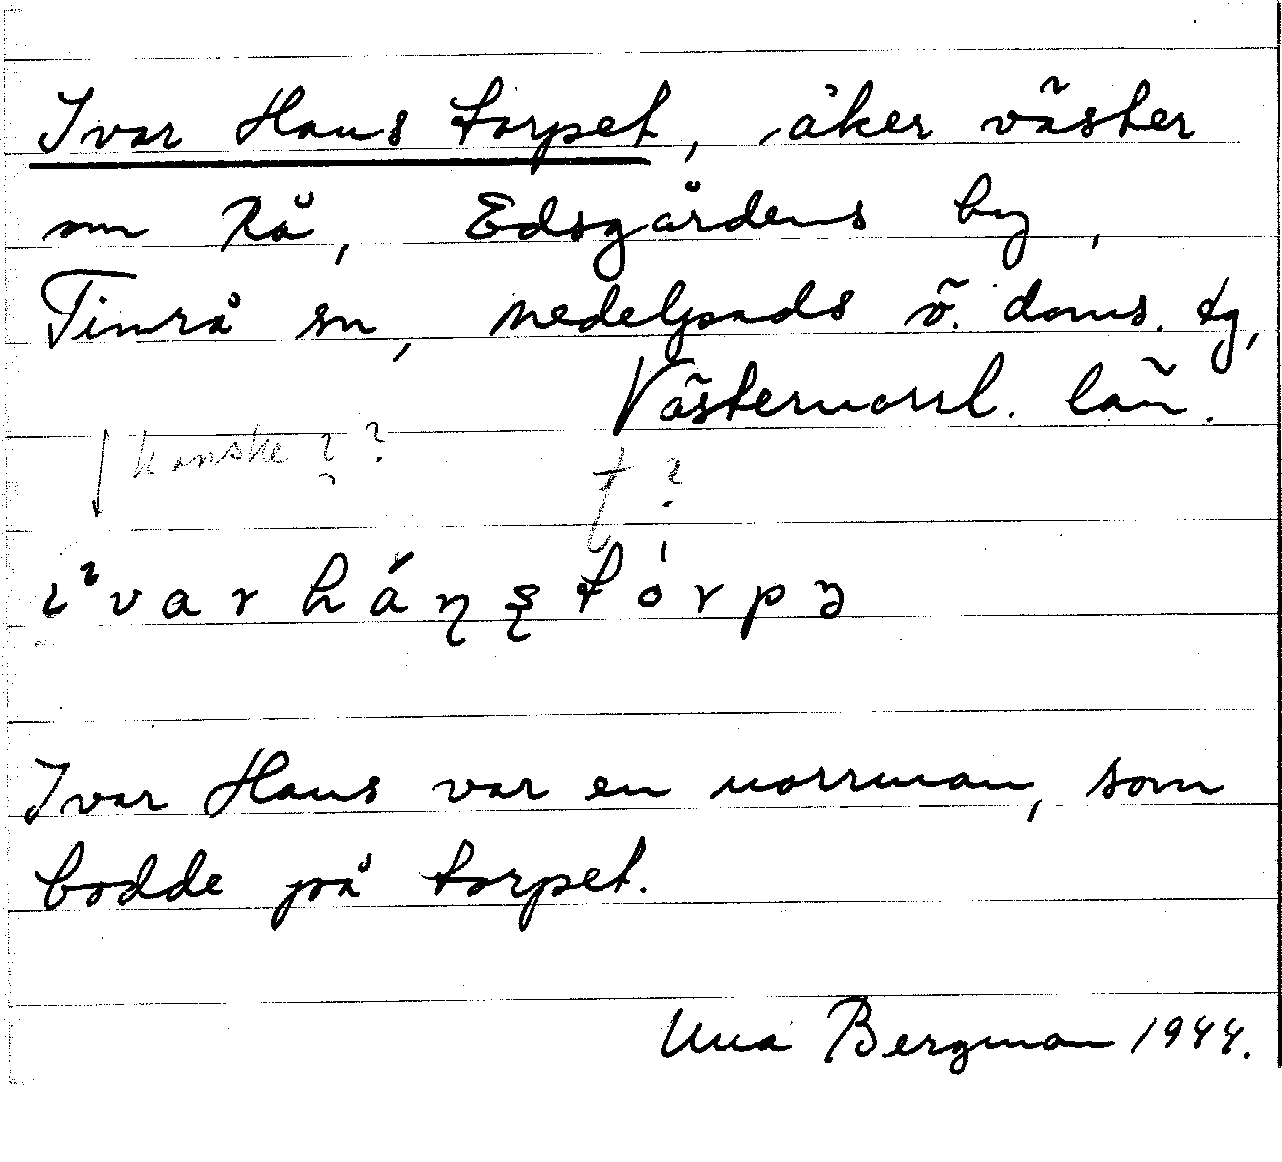 Ivar Hans torpet, åker väster
om Rå, Edsgårdens by,
Timrå sn, Medelpads ö. doms. tg,
Västernorrl. län.
kanske ? ?
t ?
Ivar Hans var en norrman, som
bodde på torpet.
Una Bergman 1944.